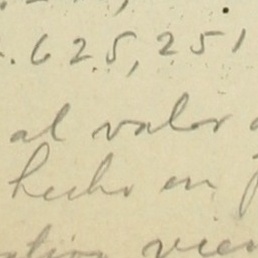 .625,251
al valor
hecho en